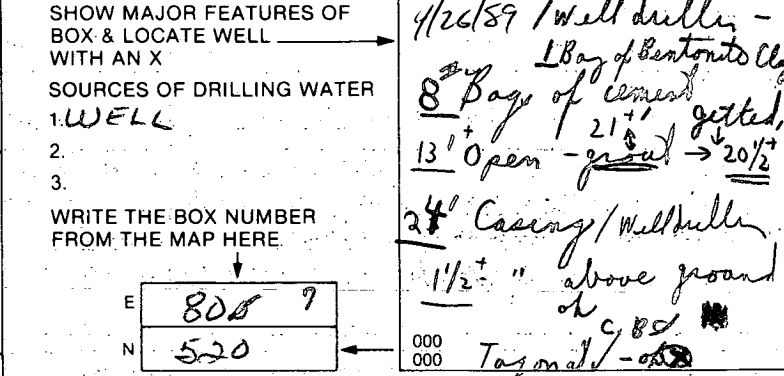 SHOW MAJOR FEATURES OF
BOX & LOCATE WELL
WITH AN X
SOURCES OF DRILLING WATER
1. WELL
2.
3.
WRITE THE BOX NUMBER
FROM THE MAP HERE
E 80 7
N 520
000
000
4/26/89 / Well driller -
1 Bag of Bentonite Cla
8 Bags of cement
21+' getted,
13'+ Open - grout → 20 1/2+
24' Casing / Welldriller
1 1/2+ " above ground
ok